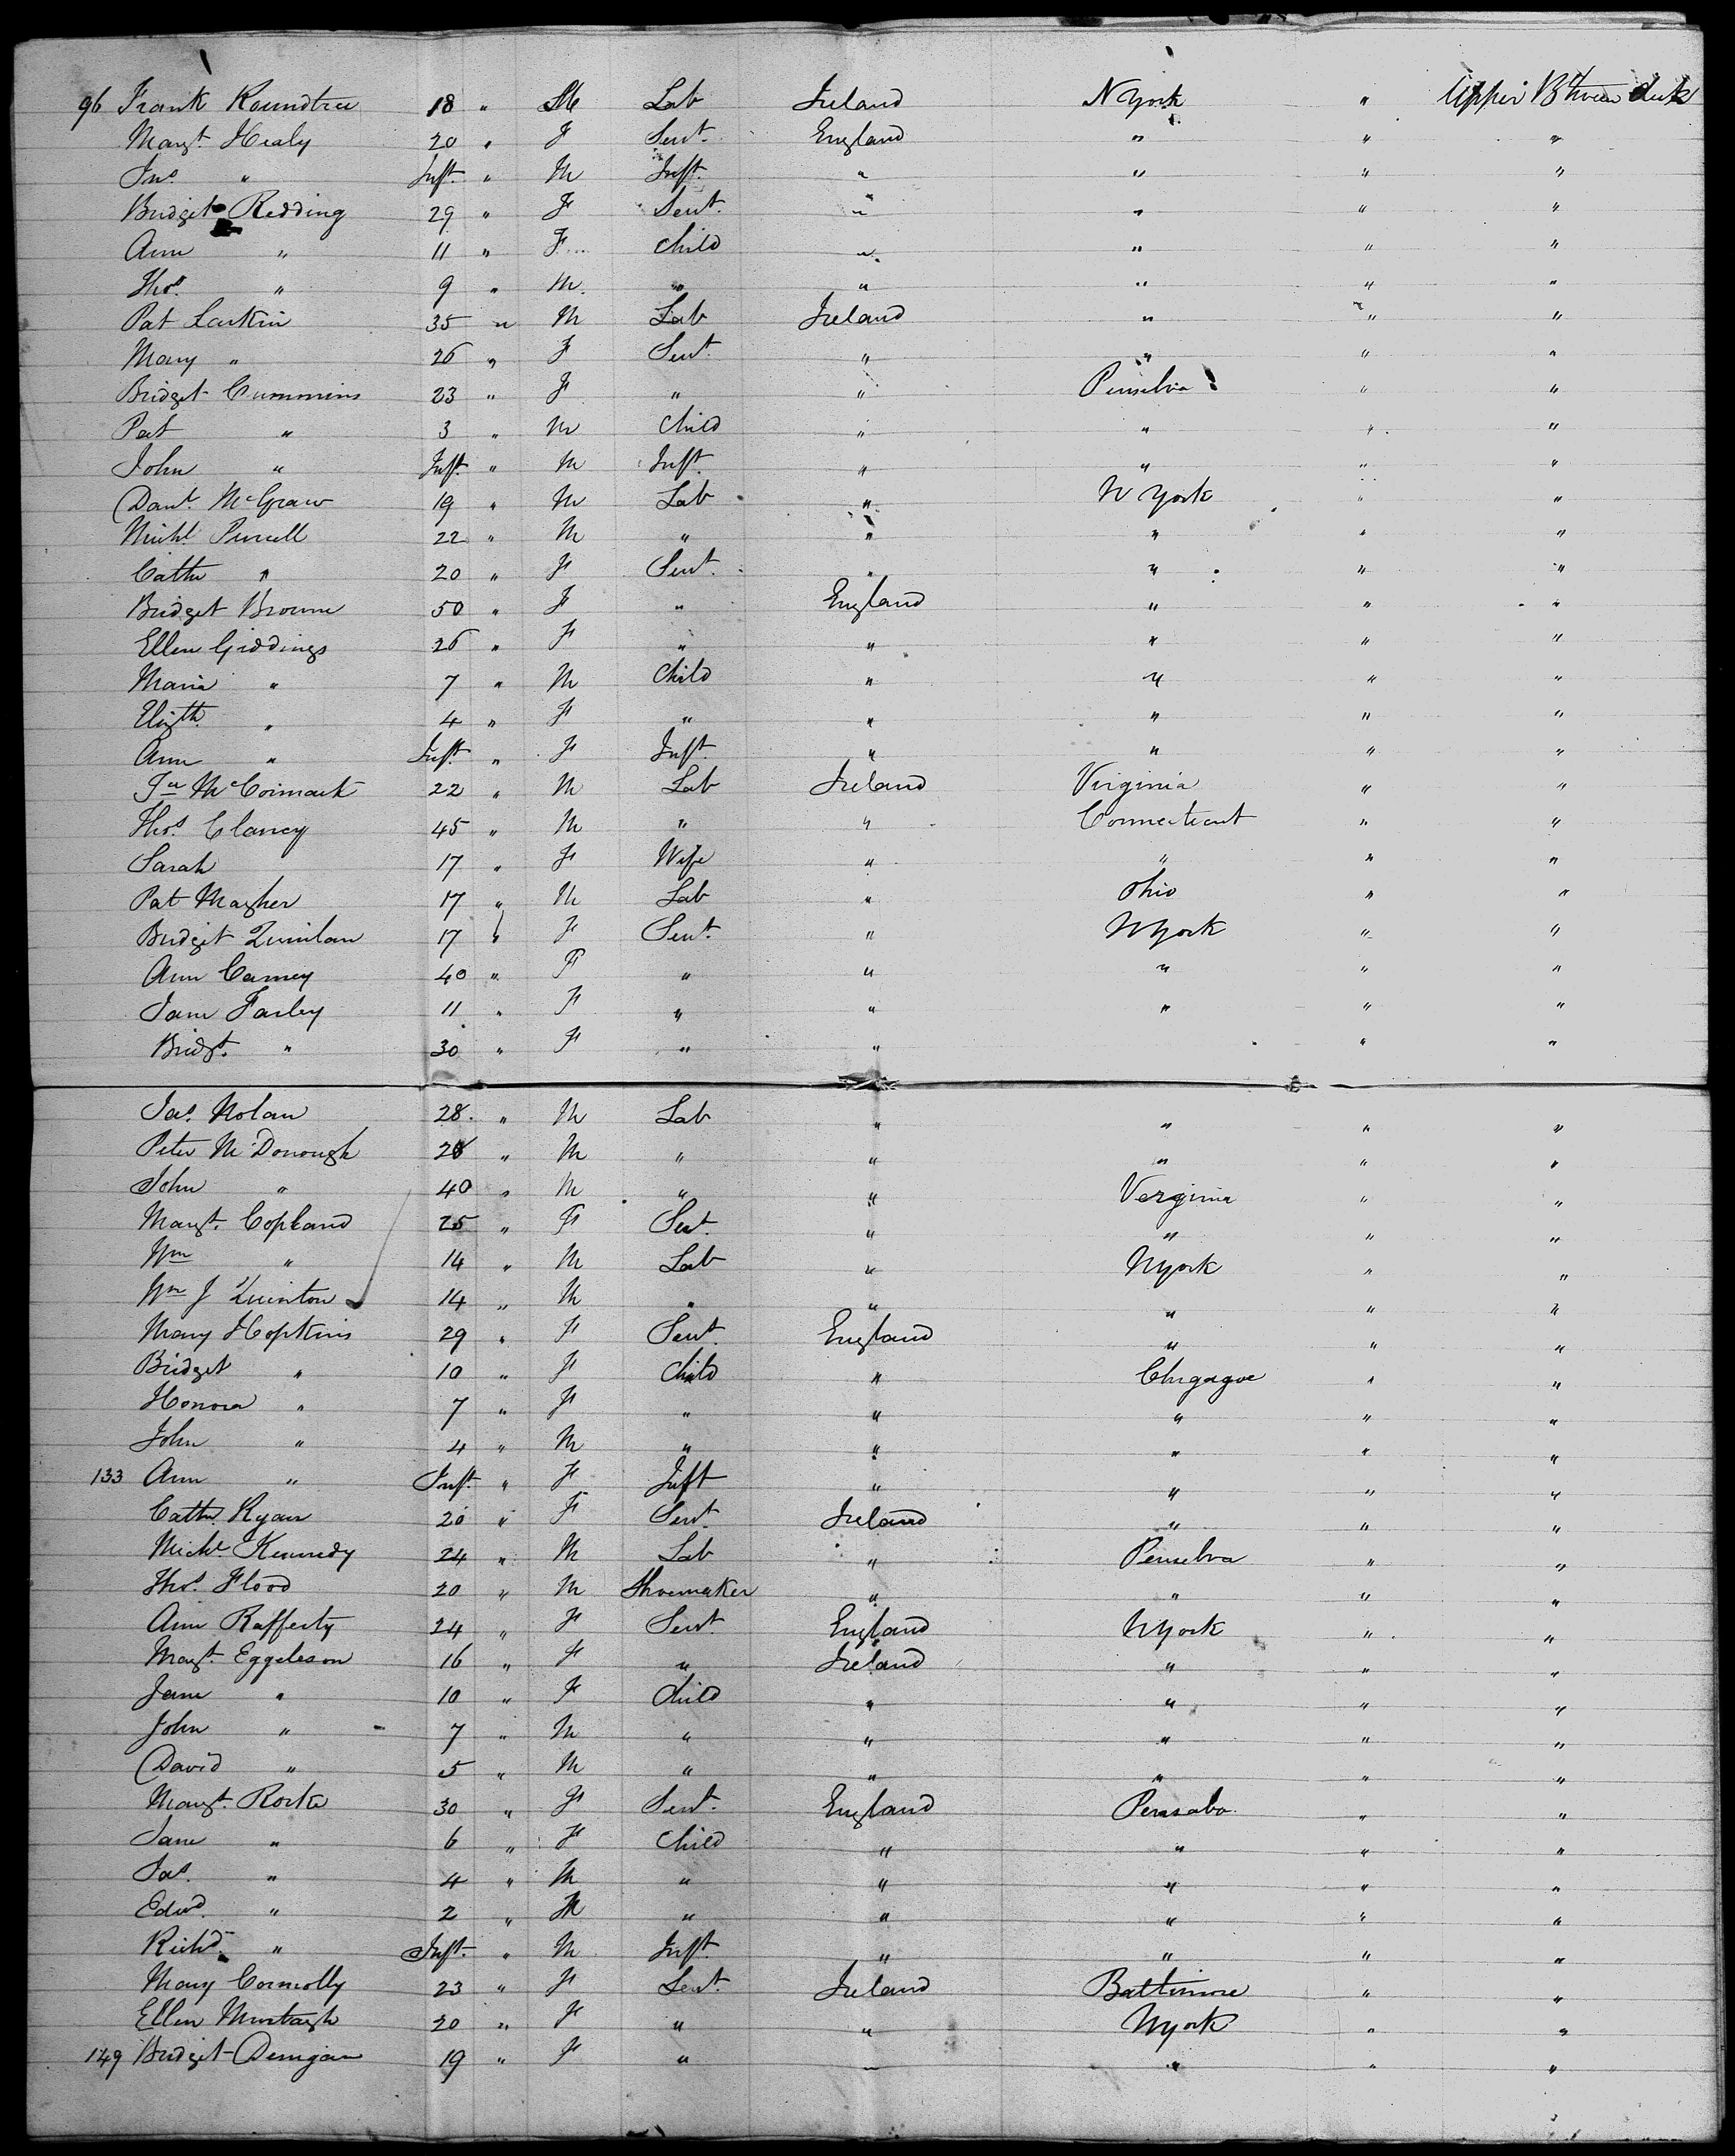 96 Frank Roundtree 18 " M Lab Ireland N York " Upper Btween deck
Margt. Healy 20 " F Sert. England " " "
Jno. " Inft. " M Inft. " " " "
Bridget Redding 29 " F Sert. " " " "
Ann " 11 " F Child " " " "
Thos. " 9 " M. " " " " "
Pat Larkin 35 " M Lab Ireland " " "
Mary " 26 " F Sert. " " " "
Bridget Cummins 23 " F " " Penselva " "
Pat " 3 " M Child " " " "
John " Inft. " M Inft. " " " "
Danl. McGraw 19 " M Lab " N York " "
Michl. Purcell 22 " M " " " " "
Cathn " 20 " F Sert. " " " "
Bridget Browne 50 " F " England " " "
Ellen Giddings 26 " F " " " " "
Maria " 7 " M Child " " " "
Elizth. " 4 " F " " " " "
Ann " Inft. " F Inft. " " " "
McCormack 22 " M Lab Ireland Virginia " "
Thos. Clancy 45 " M " " Connecticut " "
Sarah 17 " F Wife " " " "
Pat Magher 17 " M Lab " Ohio " "
Bridget Quinlan 17 " F Sert. " NYork " "
Ann Carney 40 " F " " " " "
Jane Farley 11 " F " " " " "
Bridgt. " 30 " F " " " "
Jas. Nolan 28. " M Lab " " " "
Peter McDonough 28 " M " " " " "
John " 40 " M " " Verginia " "
Margt. Copland 25 " F Sert. " " " "
Wm " 14 " M Lab " NYork " "
Wm J Quinton 14 " M " " " " "
Mary Hopkins 29 " F Sert. England " " "
Bridget " 10 " F Child " Chigagoe " "
Honora " 7 " F " " " " "
John " 4 " M " " " " "
133 Ann " Inft. " F Inft " " " "
Cathn. Ryan 20 " F Sert. Ireland " " "
Michl. Kennedy 24 " M Lab " Penselva " "
Thos. Flood 20 " M Shoemaker " " " "
Ann Rafferty 24 " F Sert. England NYork " "
Margt. Eggleson 16 " F " Ireland " " "
Jane " 10 " F Child " " " "
John " 7 " M " " " " "
David " 5 " M " " " " "
Margt. Rorke 30 " F Sert. England " "
Jane " 6 " F Child " " " "
Jas. " 4 " M " " " " "
Edwd. " 2 " M " " " " "
Richd. " Inft. " M Inft. " " " "
Mary Connolly 23 " F Sert. Ireland Baltimore " "
Ellen Murtagh 20 " F " " NYork " "
149 Bridget Denigan 19 " F " " " " "